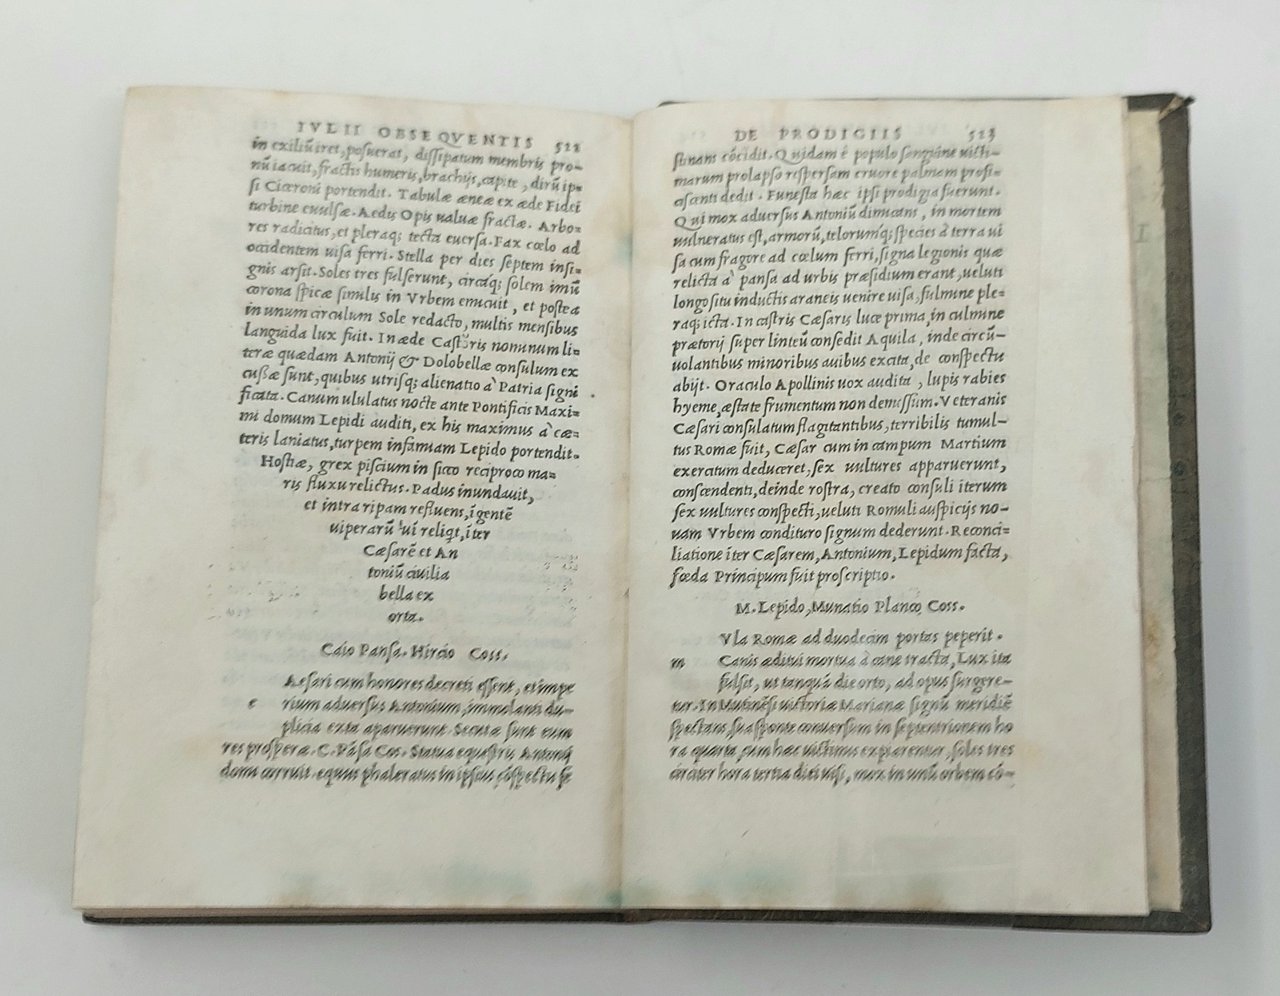 IVLII OBSEQVENTIS 522
in exiliũ iret, posuerat, dissipatum membris pro-
nũ iacuit, fractis humeris, brachijs, capite, dirũ ip-
si Ciceroni portendit. Tabulæ æneæ ex æde Fidei
turbine euulsæ. Aedis Opis ualuæ fractæ. Arbo-
res radicitus, et pleraq; tecta euersa. Fax cœlo ad
occidentem uisa ferri. Stella per dies septem insi-
gnis arsit. Soles tres fulserunt, circaq; solem imũ
corona spicæ similis in Vrbem emicuit, et postea
in unum circulum Sole redacto, multis mensibus
languida lux fuit. In æde Castoris nominum li-
teræ quædam Antonij & Dolobellæ consulum ex
cussæ sunt, quibus utrisq; alienatio à Patria signi
ficata. Canum ululatus nocte ante Pontificis Maxi-
mi domum Lepidi auditi, ex his maximus à cæ-
teris laniatus, turpem infamiam Lepido portendit.
Hostiæ, grex piscium in sicco reciproco ma-
ris fluxu relictus. Padus inundauit,
et intra ripam refluens, ĩgentẽ
uiperarũ uĩ reliqt, iter
Cæsarẽ et An
toniũ ciuilia
bella ex
orta.
Caio Pansa. Hircio Coss.
Aesari cum honores decreti essent, et impe
c rium aduersus Antonium, immolanti du-
plicia exta aparuerunt. Secutæ sunt eum
res prosperæ. C. Pãsa Cos. Statua equestris Antonij
domi corruit. equus phaleratus in ipsius cõspectu fe
DE PRODIGIIS 523
stinans cõcidit. Quidam è populo sanguine uicti-
marum prolapso respersam cruore palmam profi-
ciscenti dedit. Funesta hæc ipsi prodigia fuerunt.
Qui mox aduersus Antoniũ dimicans, in mortem
uulneratus est, armorũ, telorumq; species à terra ui
sa cum fragore ad cœlum ferri, signa legionis quæ
relicta à pansa ad urbis præsidium erant, ueluti
longo situ inductis araneis uenire uisa, fulmine ple-
raq; icta. In castris Cæsaris luce prima, in culmine
prætorij super linteũ consedit Aquila, inde circũ-
uolantibus minoribus auibus excita, de conspectu
abijt. Oraculo Apollinis uox audita, lupis rabies
hyeme, æstate frumentum non demessum. Veteranis
Cæsari consulatum flagitantibus, terribilis tumul-
tus Romæ fuit, Cæsar cum in campum Martium
exercitum deduceret, sex uultures apparuerunt,
conscendenti, deinde rostra, creato consuli iterum
sex uultures conspecti, ueluti Romuli auspicijs no-
uam Vrbem condituro signum dederunt. Reconci-
liatione iter Cæsarem, Antonium, Lepidum facta,
fœda Principum fuit proscriptio.
M. Lepido, Munatio Planco, Coss.
Vla Romæ ad duodecim portas peperit.
m Canis æditui mortua à cane tracta, Lux ita
fulsit, ut tanquã die orto, ad opus surgere-
tur. In Mutinẽsi uictoriæ Marianæ signũ meridiẽ
spectans, sua sponte conuersum in septentrionem ho
ra quarta, cum hæc uictimis expiarentur, soles tres
circiter hora tertia diei uisi, mox in unũ orbem cõ-